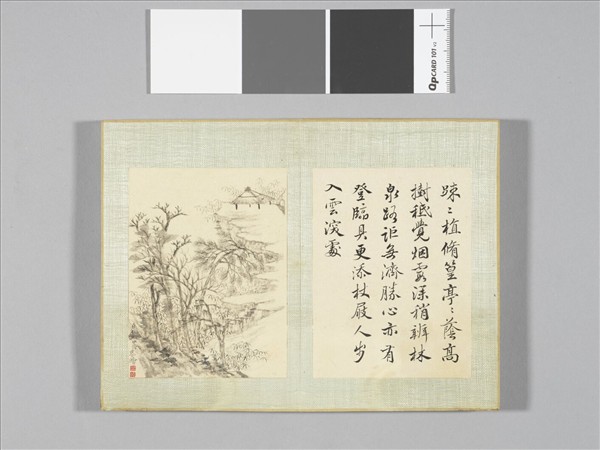 疎〻植脩篁亭〻蔭高
樹秪覺烟霞深稍辨林
泉路詎無濟勝心亦有
登臨具更添杖屐人步
入雲深處
QPCARD 101